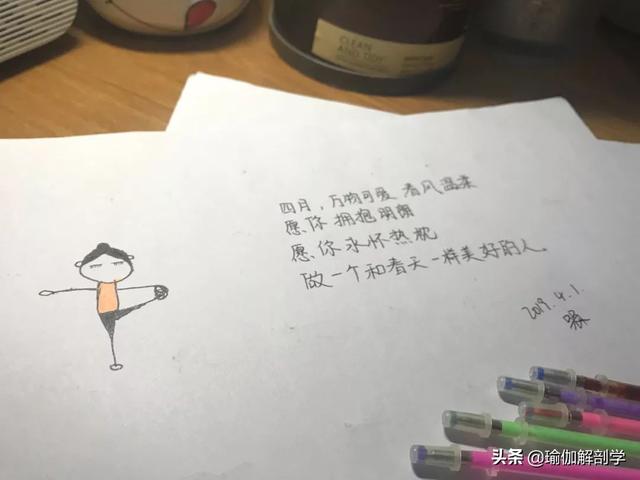 CLEAN
AND TIDY
四月，万物可爱 春风温柔
愿你拥抱明朗
愿你永怀热忱
做一个和春天一样美好的人。
2019.4.1.
头条 @瑜伽解剖学